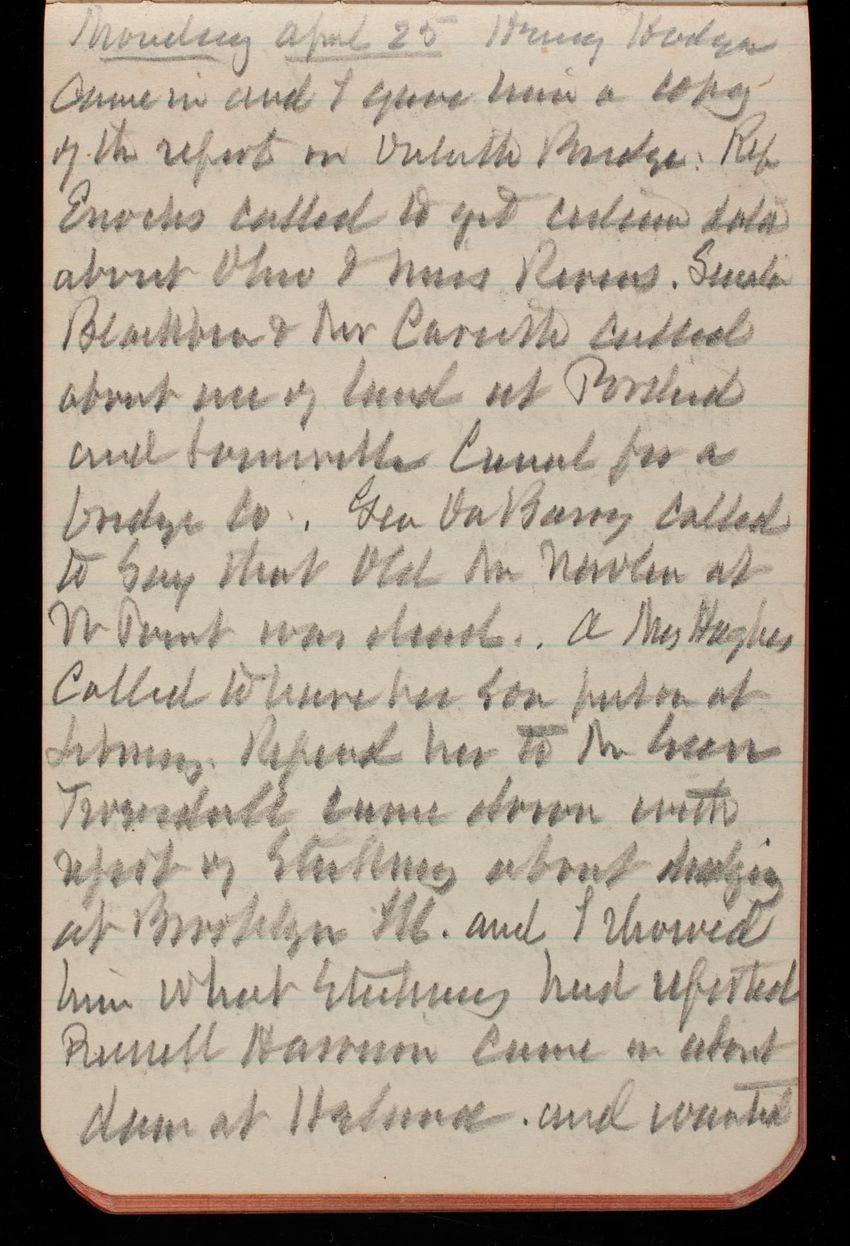 Monday April 25 Henry Hodges
Came in and I gave him a copy
of the report on Duluth Bridge. Rep
Enochs called to get certain data
about Ohio & Miss Rivers. Senator
Blackburn & Mr Caruth called
about use of land at Portland
and Louisville Canal for a
bridge Co. Geo DuBarry called
to say that Old Mr at
W Point was dead. A Mrs Hughes
Called to have her son put on at
. Referred her to Mr
Truesdell came down with
report of Stickney about dredging
at Brooklyn Ill. and I showed
him what Stickney had reported
Russell Harrison came in about
dam at Helena. and wanted